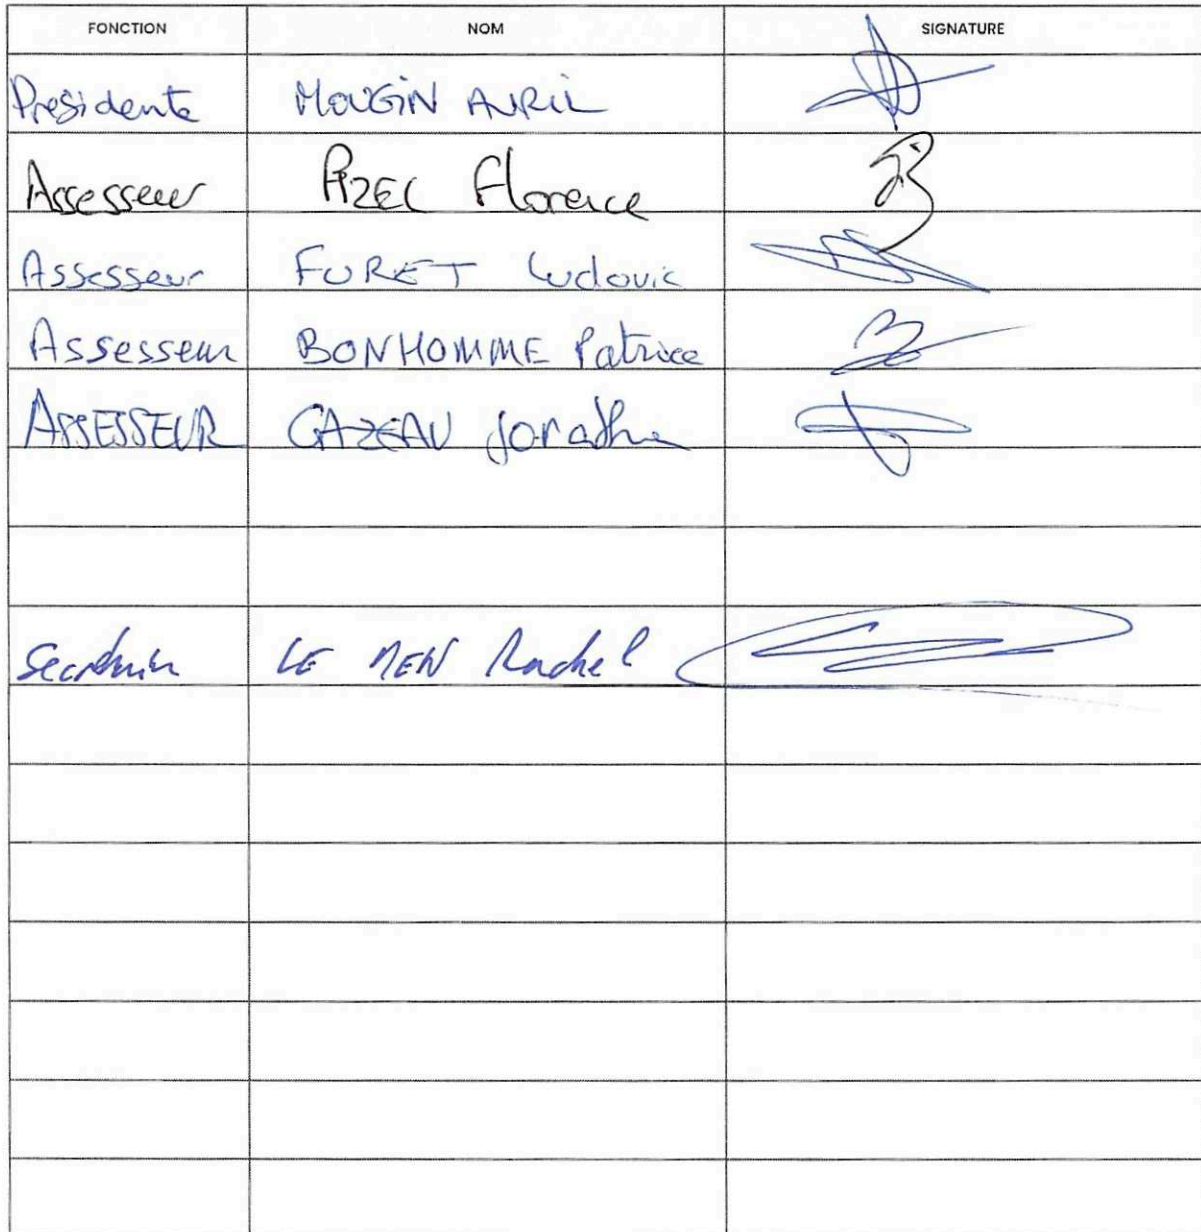 FONCTION NOM SIGNATURE
Presidente MOUGIN AVRIL
Assesseur PIZEL Florence
Assesseur FURET Ludovic
Assesseur BONHOMME Patrice
ASSESSEUR GAZEAU
LE MEN Rachel